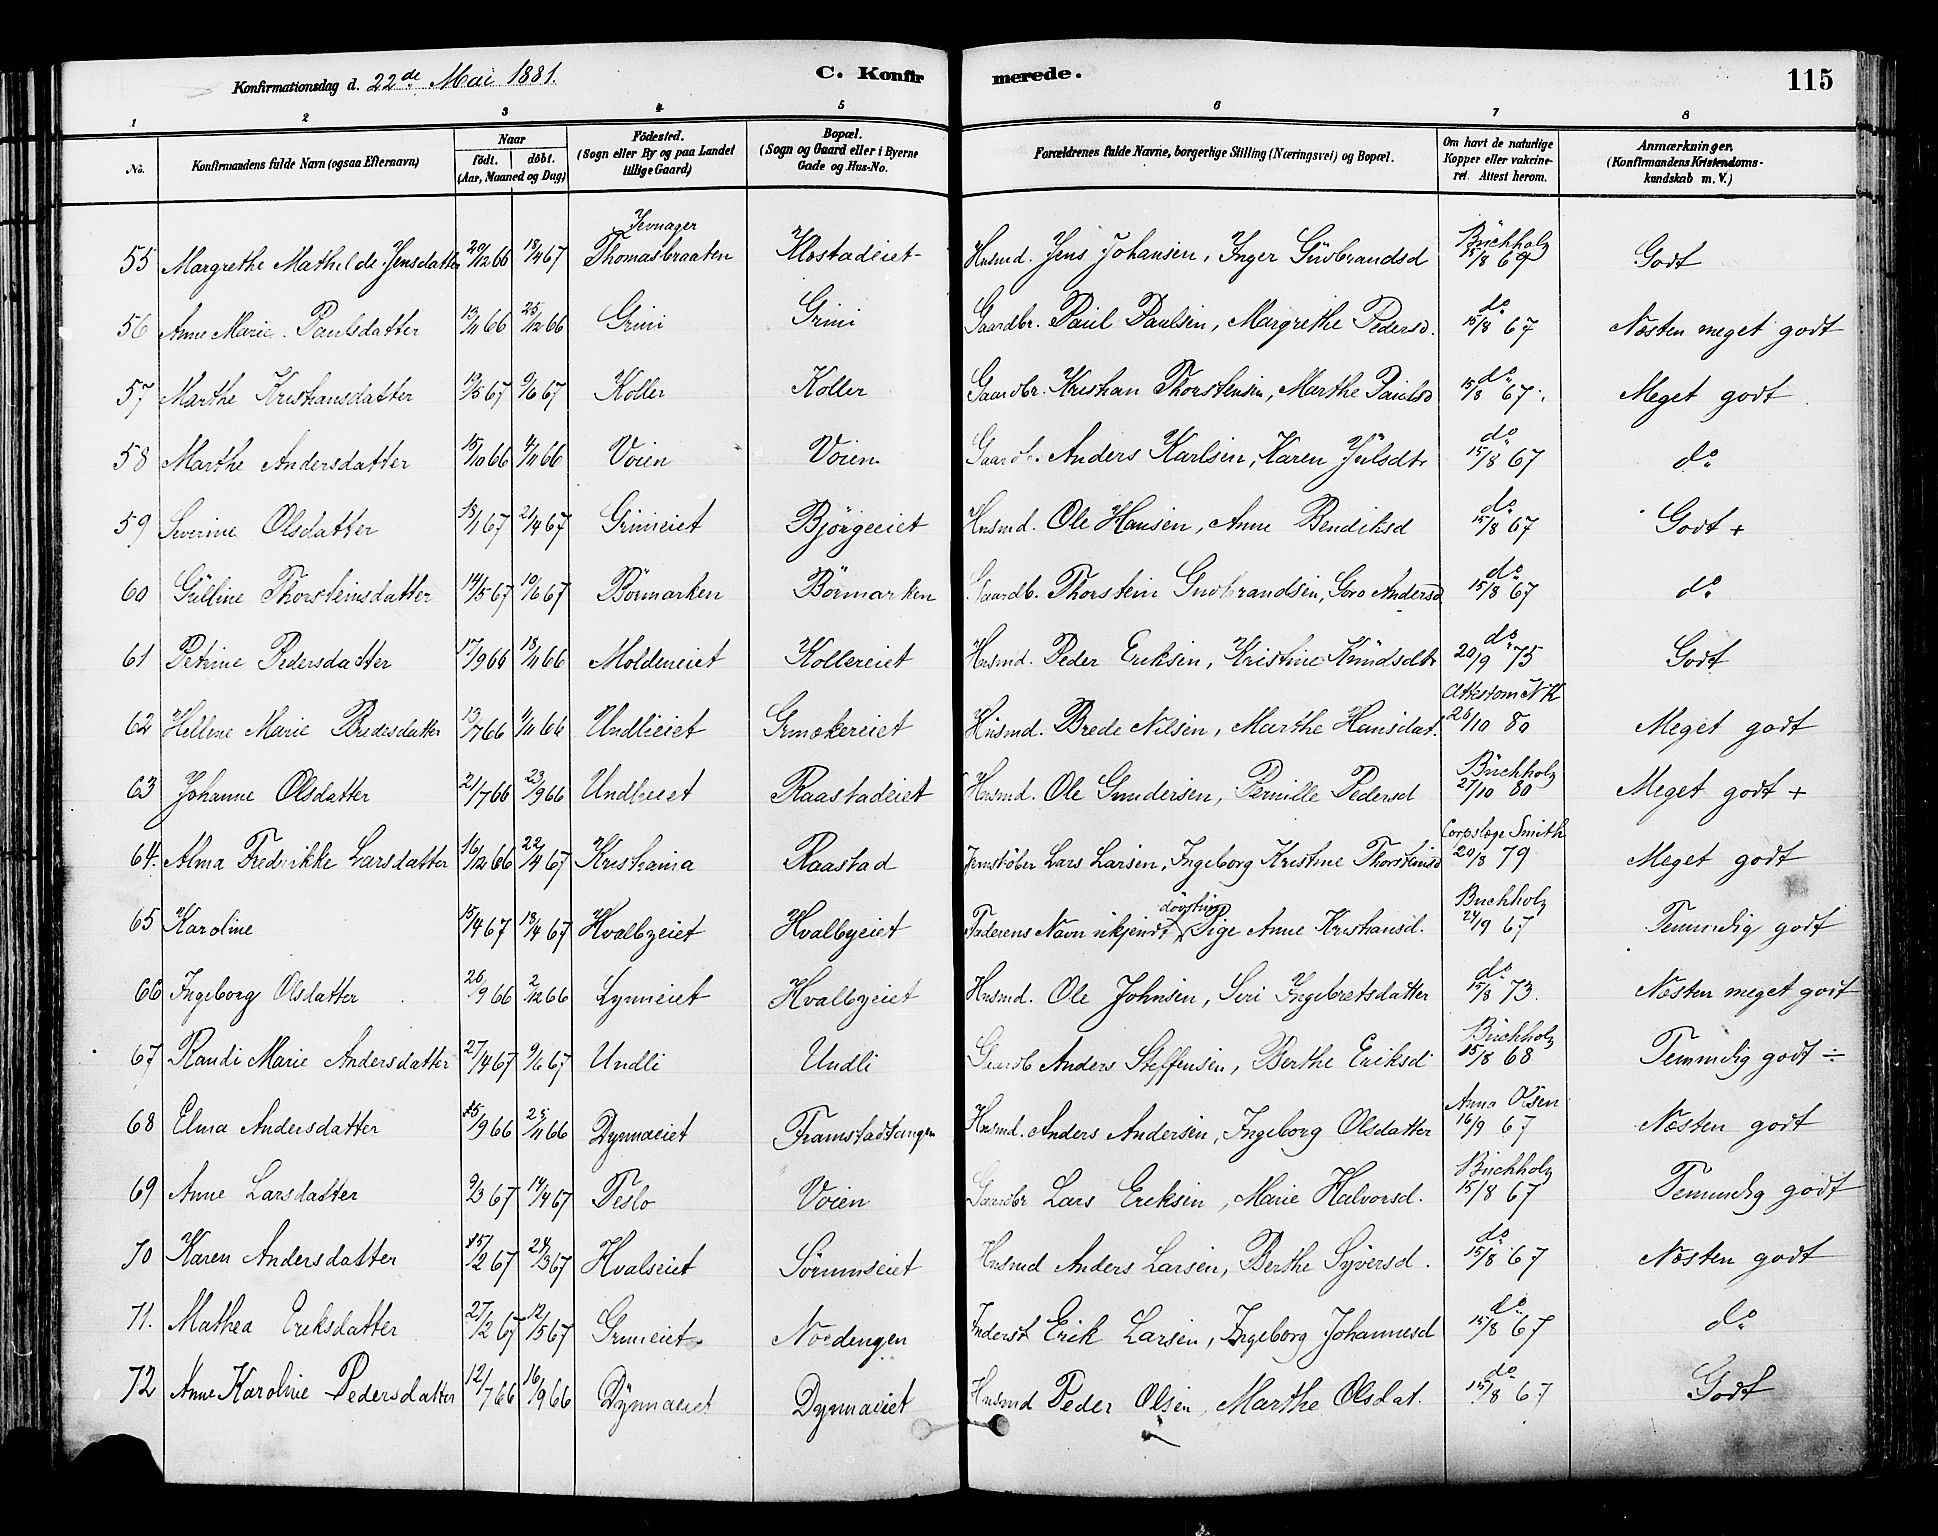 Konfirmationsdag d. 22de Mai 1881.
C. Konfirmerede.
115
1 2 3 4 5 6 7 8
No.
Konfirmandens fulde Navn (ogsaa Efternavn)
Naar
födt. döbt.
(Aar, Maaned og Dag)
Födested.
(Sogn eller By og paa Landet
tillige Gaard)
Bopæl.
(Sogn og Gaard eller i Byerne
Gade og Hus-No.
Forældrenes fulde Navne, borgerlige Stilling (Næringsvei) og Bopæl.
Om havt de naturlige
Kopper eller vakcine-
ret. Attest herom.
Anmærkninger.
(Konfirmandens Kristendoms-
kundskab m. V.)
55 Margrethe Mathilde Jensdatter 20/12 66 18/4 67 Jevnager Thomasbraaten Klæstadeiet Husmd. Jens Johansen, Inger Gudbrandsd Buchholz 15/8 69 Godt
56 Anne Marie Paulsdatter 13/11 66 25/12 66 Grini Grini Gaardbr. Paul Paulsen, Margrethe Pedersd. do 15/8 67 Næsten meget godt
57 Marthe Kristiansdatter 12/5 67 9/6 67 Koller Koller Gaardbr. Kristian Thorstensen, Marthe Paulsd do 15/8 67. Meget godt
58 Marthe Andersdatter 15/10 66 4/11 66 Voien Voien Gaardb. Anders Karlsen, Karen Julsdtr do 15/8 67 do
59 Severine Olsdatter 13/1 67 21/4 67 Grinieiet Bjørgeeiet Husmd. Ole Hansen, Anne Bendiksd do 15/8 67 Godt +
60 Gulline Thorsteinsdatter 14/5 67 10/6 67 Börmarken Börmarken Gaardb. Thorstein Gudbrandsen, Goro Andersd do 15/8 67 do
61 Petrine Pedersdatter 17/9 66 18/11 66 Moldeneiet Kollereiet Husmd. Peder Eriksen, Kristine Knudsdtr do 20/9 75 Godt
62 Hellene Marie Bredesdatter 13/7 66 4/11 66 Undlieiet Grinakereiet Husmd. Brede Nilsen, Marthe Hansdat. Attestom N K 26/10 80 Meget godt
63 Johanne Olsdatter 21/7 66 23/9 66 Undlieiet Raastadeiet Husmd. Ole Gundersen, Pernille Pedersd Buchholz 27/10 80 Meget godt +
64. Alma Fredrikke Larsdatter 16/12 66 22/4 67 Kristiania Raastad Jernstøber Lars Larsen, Ingeborg Kristine Thorsteinsd Corpslæge Smith 20/8 79 Meget godt
65 Karoline 15/4 67 18/4 67 Hvalbyeiet Hvalbyeiet Faderens Navn ukjendt, døvstum Pige Anne Kristiansd. Buchholz 24/9 67 Temmelig godt
66 Ingeborg Olsdatter 26/9 66 2/12 66 Lynneiet Hvalbyeiet Husmd. Ole Johnsen, Siri Ingebretsdatter do 15/8 73. Næsten meget godt
67 Randi Marie Andersdatter 27/4 67 9/6 67 Undli Undli Gaardb Anders Steffensen, Berthe Eriksd Buchholz 15/8 68 Temmelig godt ÷
68 Elma Andersdatter 15/9 66 25/11 66 Dynnaeiet Framstadtangen Husmd. Anders Andersen, Ingeborg Olsdatter Anna Olsen 16/9 67 Næsten godt
69 Anne Larsdatter 9/3 67 14/4 67 Teslo Voien Gaardbr Lars Eriksen, Marie Halvorsd. Buchholz 15/8 67 Temmelig godt
70 Karen Andersdatter 15/2 67 24/3 67 Hvalseiet Sörumseiet Husmd Anders Larsen, Berthe Syversd. do 15/8 67 Næsten godt
71. Mathea Eriksdatter 27/2 67 12/5 67 Grinieiet Nordengen Inderst Erik Larsen, Ingeborg Johannesd do 15/8 67 do
72 Anne Karoline Pedersdatter 12/7 66 16/9 66 Dynnaeiet Dynnaeiet Husmd Peder Olsen, Marthe Olsdat. do 15/8 67 Godt